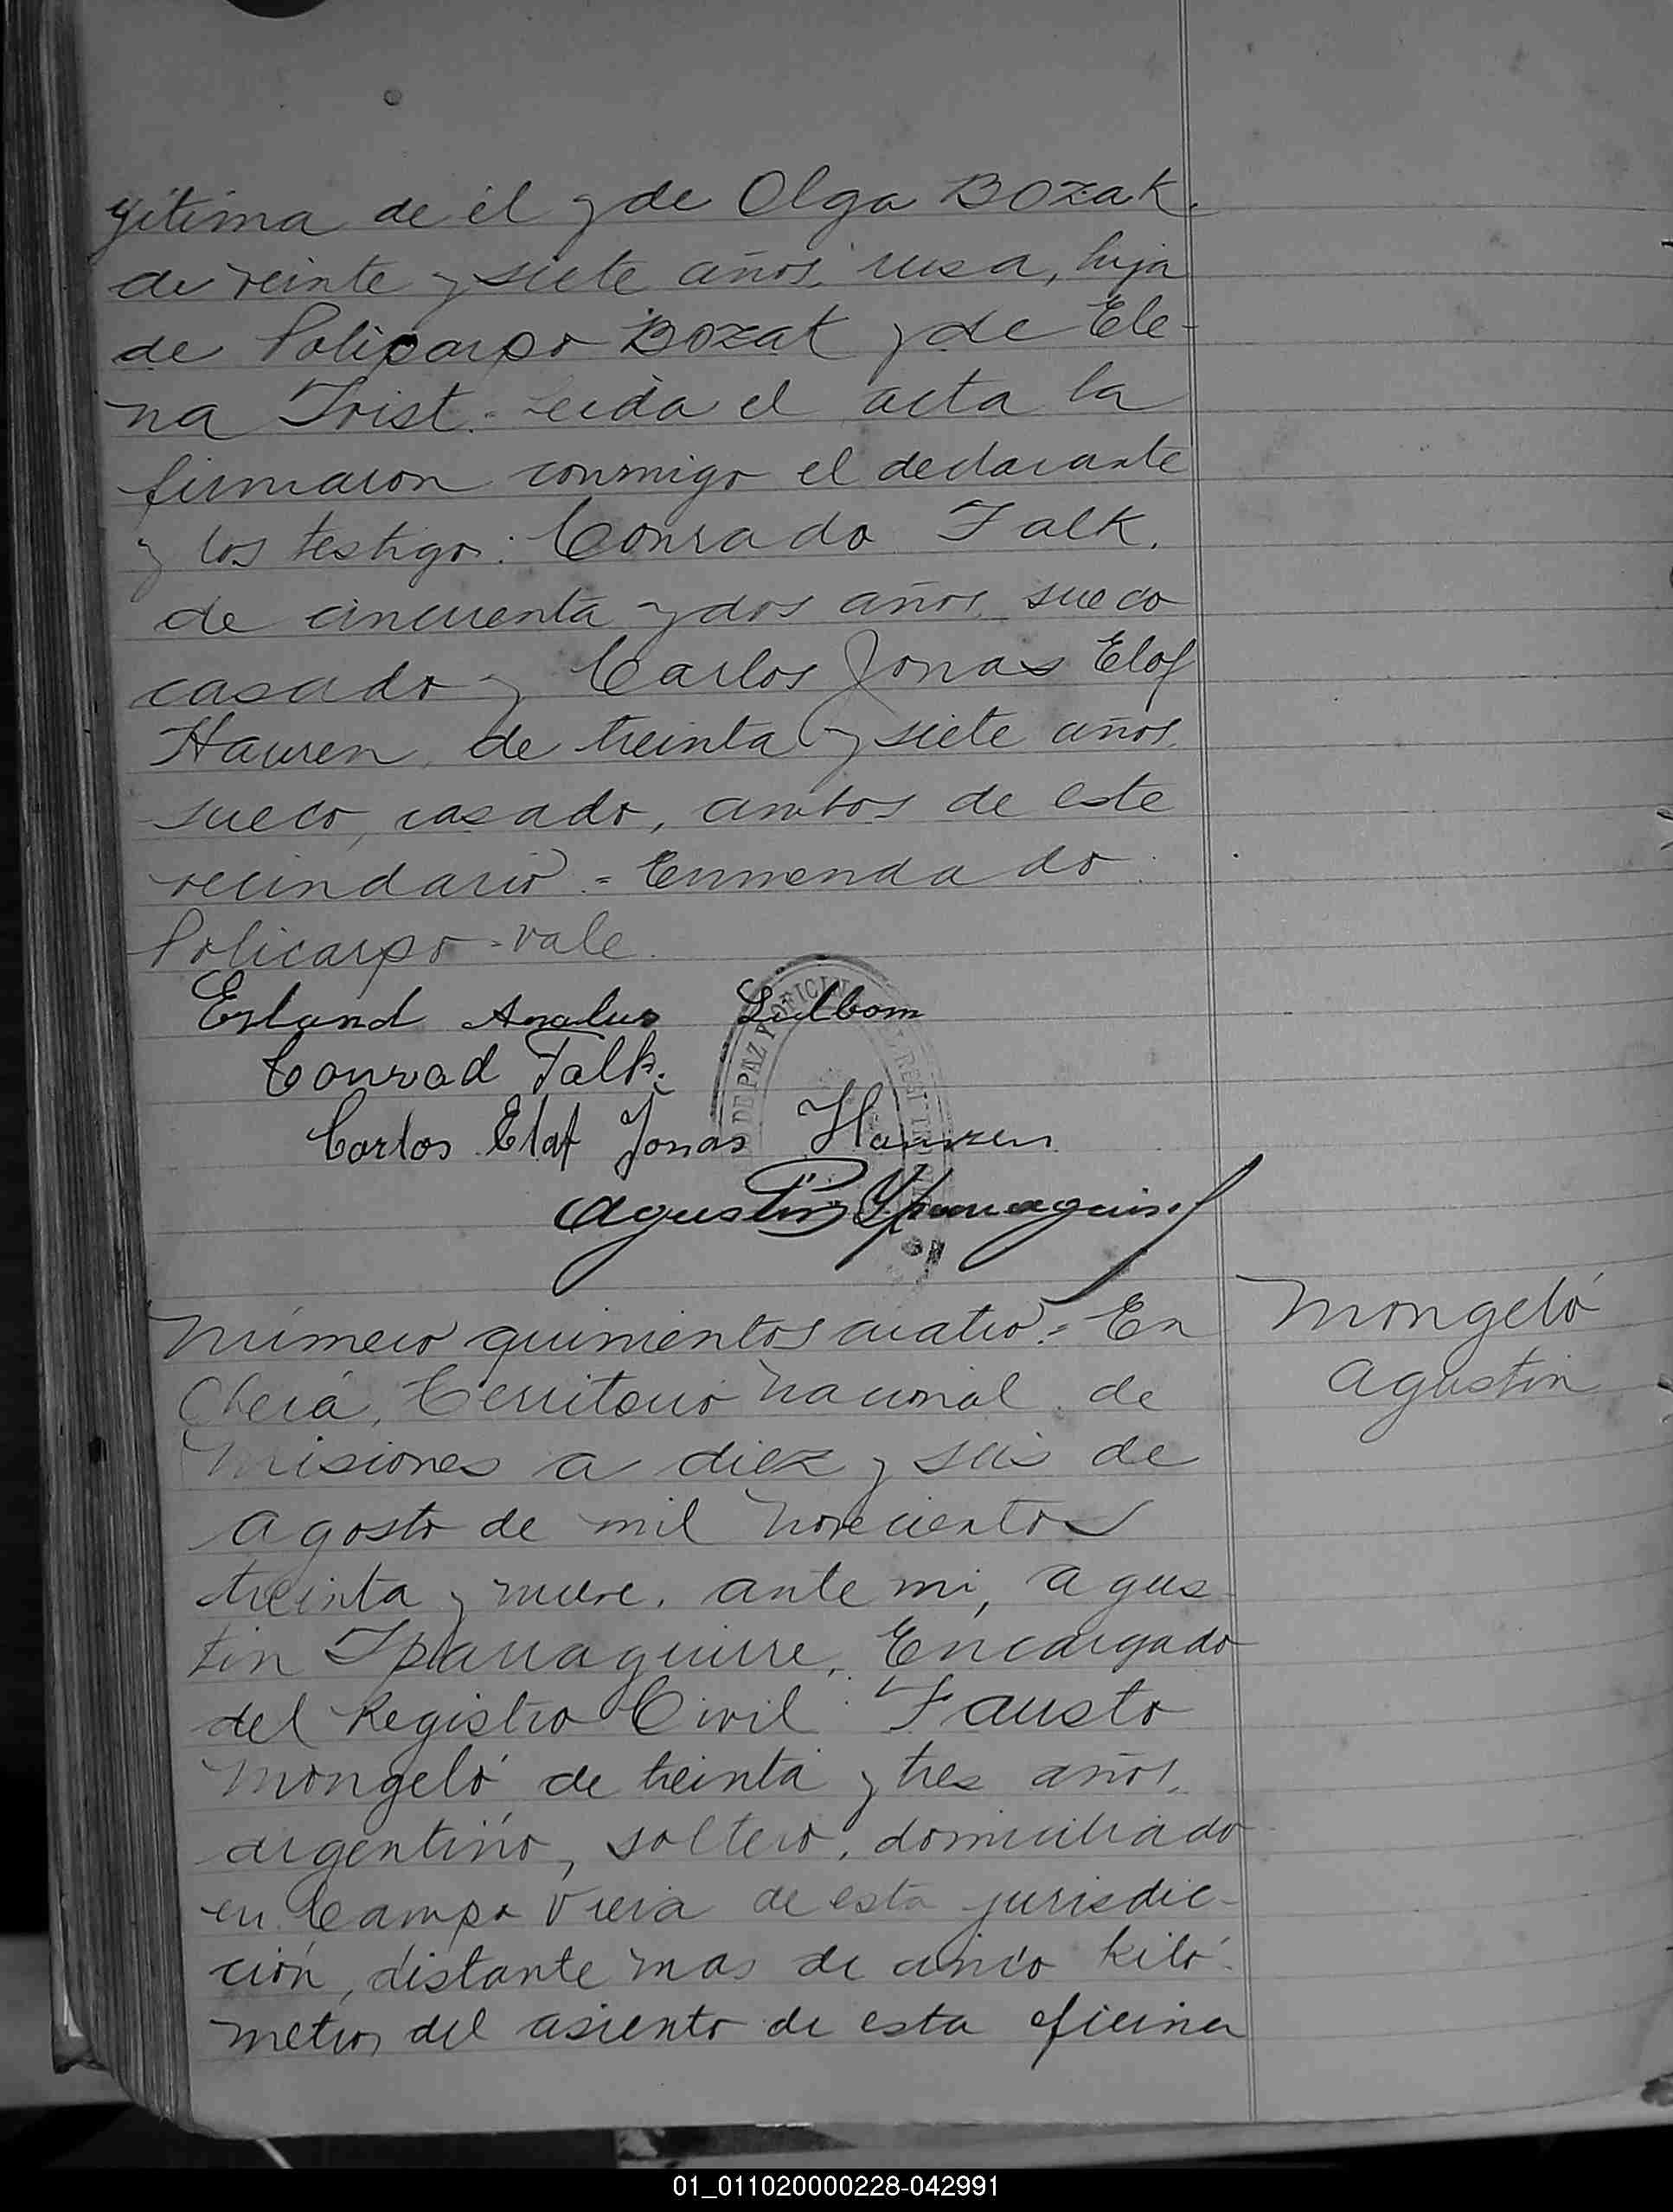 gítima de él y de Olga Bozak.
de veinte y siete años, rusa, hija
de Policarpo Bozak y de Ele-
na Trist.- Leida el acta la
firmaron conmigo el declarante
y los testigo: Conrado Falk.
de cincuenta y dos años, sueco
casado y Carlos Jonas Elof
Hauren, de treinta y siete años,
sueco, casado, ambos de este
vecindario.= Enmendado
Policarpo - vale.
Erland Lidbom
Conrad Falk.
Carlos Elof Jonas
Agustin Yparraguirre
DE PAZ Y OFICINA
Número quinientos cuatro.= En
Oberá, Territorio Nacional de
Misiones a diez y seis de
Agosto de mil novecientos
treinta y nueve, ante mi, Agus-
tin Iparraguirre, Encargado
del Registro Civil: Fausto
Mongeló de treinta y tres años,
argentino, soltero, domiciliado
en Campo Viera de esta jurisdic-
ción, distante mas de cinco kiló-
metros del asiento de esta oficina
Mongeló
Agustin
01_011020000228-042991